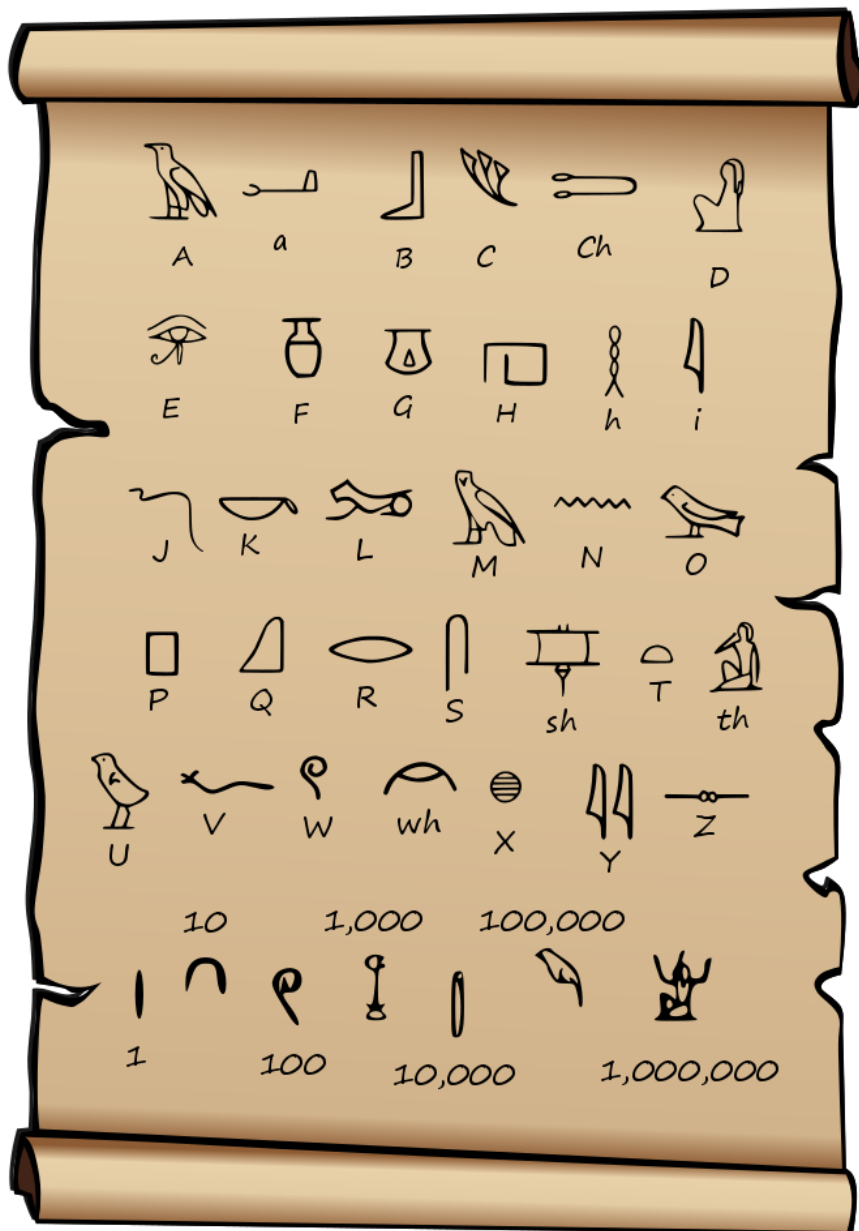 A a B C Ch D
E F G H h i
J K L M N O
P Q R S sh T th
U V W wh X Y Z
10 1,000 100,000
1 100 10,000 1,000,000